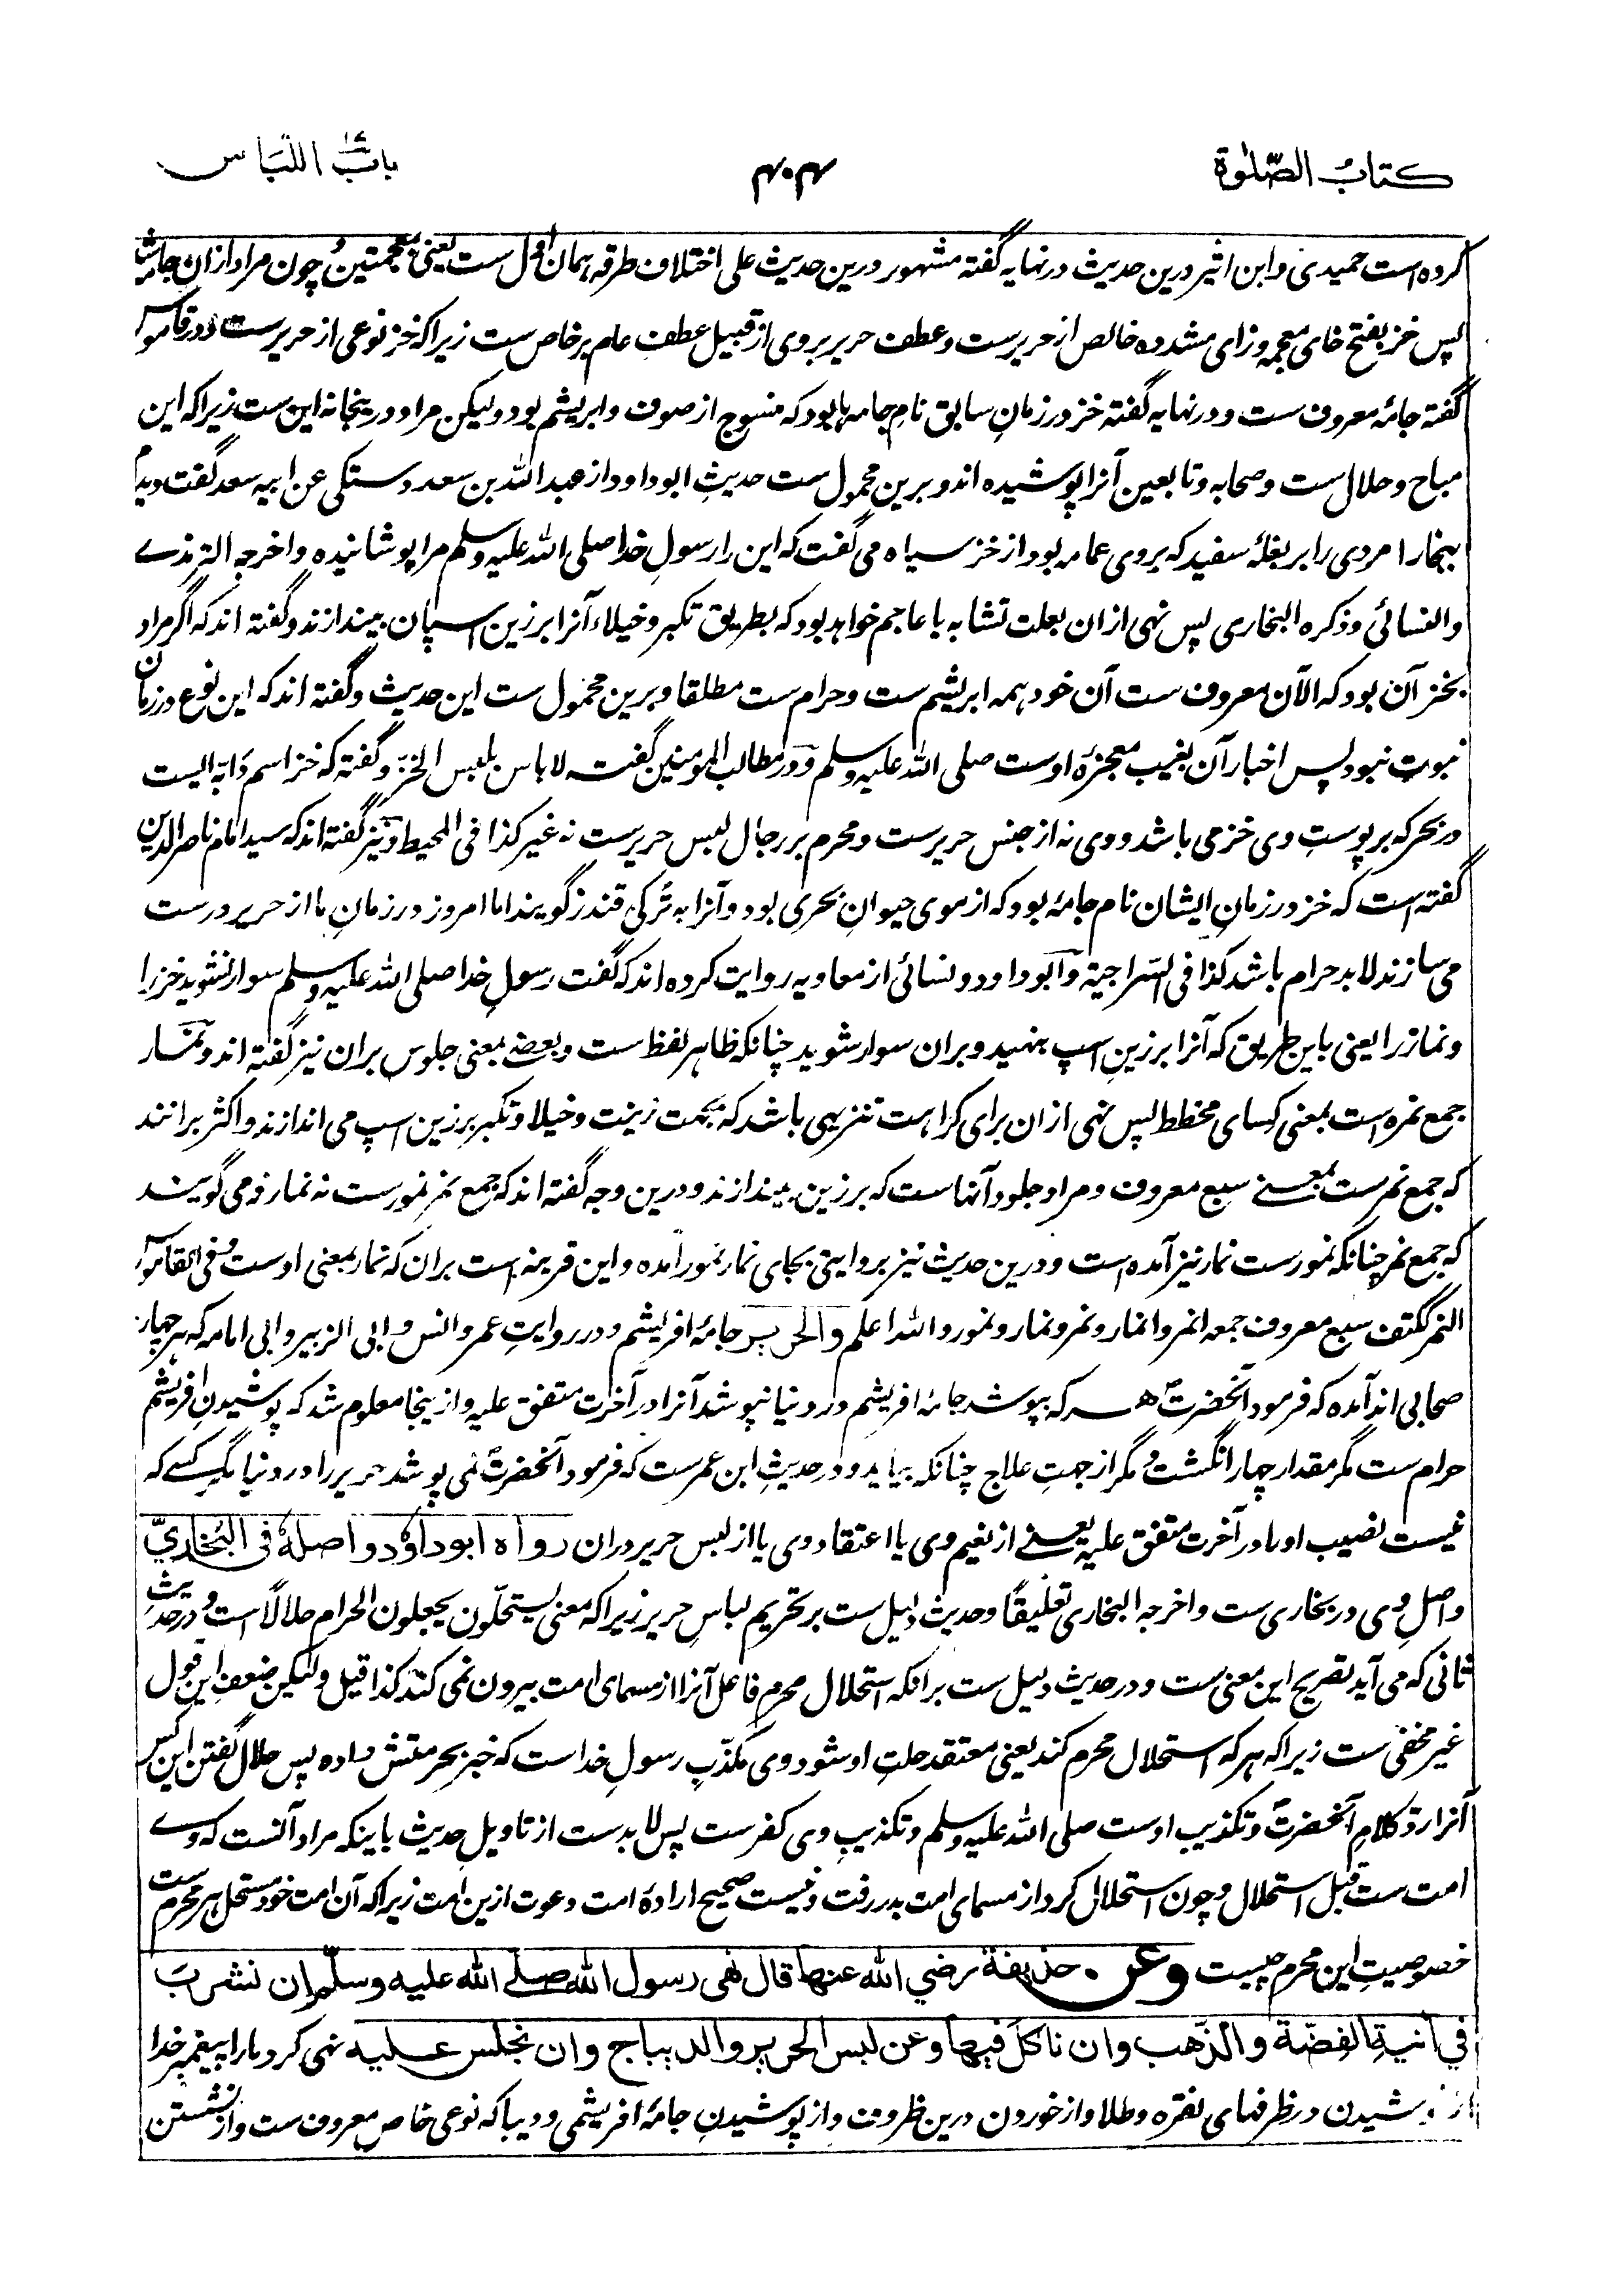 کتاب الصّلوٰة
۴۰۴
باب اللّبَاس
کرده است حمیدی و ابن اثیر درین حدیث در نهایه گفته مشهور درین حدیث علی اختلاف طرقه همان اول ست یعنی بمعجمتین و چون مراد ازان جامه
پس خز بفتح خای معجمه و زای مشدده خالص از حریرست و عطف حریر بروی از قبیل عطف عام بر خاص ست زیرا که خز نوعی از حریرست و در قاموس
گفته جامۂ معروف ست و در نهایه گفته خز در زمانِ سابق نامِ جامه‌ها بود که منسوج از صوف و ابریشم بود و لیکن مراد درینجا نه این ست زیرا که این
مباح و حلال ست و صحابه و تابعین آنرا پوشیده اند و برین محمول ست حدیثِ ابوداود از عبد الله بن سعد دستکی عن ابیه سعد گفت دیدم
ببخارا مردی را بر بغلۂ سفید که بروی عمامه بود از خز سیاه می گفت که این را رسولِ خدا صلی الله علیه وسلم مرا پوشانیده و اخرجه الترمذے
والنسائی وذکره البخاری پس نهی ازان بعلت تشابه با عاجم خواهد بود که بطریق تکبر و خیلاء آنرا بر زین اسپان بیندازند و گفته اند که اگر مراد
بخز آن بود که الآن معروف ست آن خود همه ابریشم ست و حرام ست مطلقا و برین محمول ست این حدیث و گفته اند که این نوع در زمان
نبوت نبود پس اخبار آن بغیب معجزۂ اوست صلی الله علیه وسلم و در مطالب المؤمنین گفت لا باس بلبس الخزّ و گفته که خز اسم دَابّه ایست
در بحر که بر پوستِ وی خز می باشد و وی نه از جنس حریرست و محرم بر رجال لبس حریرست نه غیر کذا فی المحیط و نیز گفته اند که سید امام ناصر الدین
گفته است که خز در زمانِ ایشان نام جامۂ بود که از موی حیوانِ بحری بود و آنرا به تُرکی قندز گویند اما امروز در زمانِ ما از حریر درست
می سازند لابد حرام باشد کذا فی السّراجیة و ابوداود و نسائی از معاویه روایت کرده اند که گفت رسولِ خدا صلی الله علیه وسلم سوار نشوید خز را
و نمار را یعنی باین طریق که آنرا بر زینِ اسپ بنهید و بران سوار شوید چنانکه ظاهر لفظ ست و بعضے بمعنی جلوس بران نیز گفته اند و نمار
جمع نمره است بمعنی کِسای مخطط پس نهی ازان برای کراهت تنزیهی باشد که بجهت زینت و خیلا و تکبر بر زین اسپ می اندازند و اکثر برانند
که جمع نمرست بمعنے سبع معروف و مراد جلود آنهاست که بر زین بیندازند و درین وجه گفته اند که جمع نمر نمورست نه نمار و می گویند
که جمع نمر چنانکه نمورست نمار نیز آمده است و درین حدیث نیز بروایتی بجای نمار نمور آمده و این قرینه است بران که نمار بمعنی اوست و فی القاموس
النمر ککتف سبع معروف جمعه انمر و انمار و نمر و نمار و نمور و الله اعلم والحریر جامۂ افریشم و در روایتِ عمر و انس و ابی الزبیر و ابی امامه که هر چهار
صحابی اند آمده که فرمود آنحضرتؐ هر که بپوشد جامۂ افریشم در دنیا نپوشد آنرا در آخرت متفق علیه و ازینجا معلوم شد که پوشیدنِ افریشم
حرام ست مگر مقدار چهار انگشت و مگر از جهتِ علاج چنانکه بیاید و در حدیثِ ابن عمرست که فرمود آنحضرتؐ نمی پوشد حریر را در دنیا مگر کسے که
نیست نصیب او را در آخرت متفق علیه یعنے از نعیم وی یا اعتقاد وی یا از لبس حریر دران رواه ابوداؤد و اصلهٗ فی البُخاريّ
و اصلِ وی در بخاری ست و اخرجه البخاری تعلیقًا و حدیث دلیل ست بر تحریم لباسِ حریر زیرا که معنی یستحلّون یجعلون الحرام حلالًا است و در حدیثِ
ثانی که می آید تصریح این معنی ست و در حدیث دلیل ست بر آنکه استحلال محرم فاعل آنرا از مسمای امت بیرون نمی کند کذا قیل و لیکن ضعفِ این قول
غیر مخفی ست زیرا که هر که استحلال محرم کند یعنی معتقد حلتِ او شود وی مکذّبِ رسولِ خداست که خبر بحرمتش داده پس حلال گفتن این کس
آنرا ردّ کلامِ آنحضرتؐ و تکذیب اوست صلی الله علیه وسلم و تکذیبِ وی کفرست پس لابدست از تاویلِ حدیث باینکه مراد آنست که وے
امت ست قبل استحلال و چون استحلال کرد از مسمای امت بدر رفت و نیست صحیح ارادۂ امت دعوت ازین امت زیرا که آن امت خود مستحل هر محرم ست
خصوصیتِ این محرم چیست وعن حذیفة رضي الله عنه قال نهی رسول الله صلّے الله علیه وسلّم ان نشربَ
في آنیةِ الفِضّة والذّهب وان ناکلَ فیها وعن لبس الحریر والدیباج وان نجلس علیه نهی کرد ما را پیغمبر خدا
از نوشیدن در ظرفهای نقره و طلا و از خوردن درین ظروف و از پوشیدنِ جامۂ افریشمی و دیبا که نوعی خاص معروف ست و از نشستن